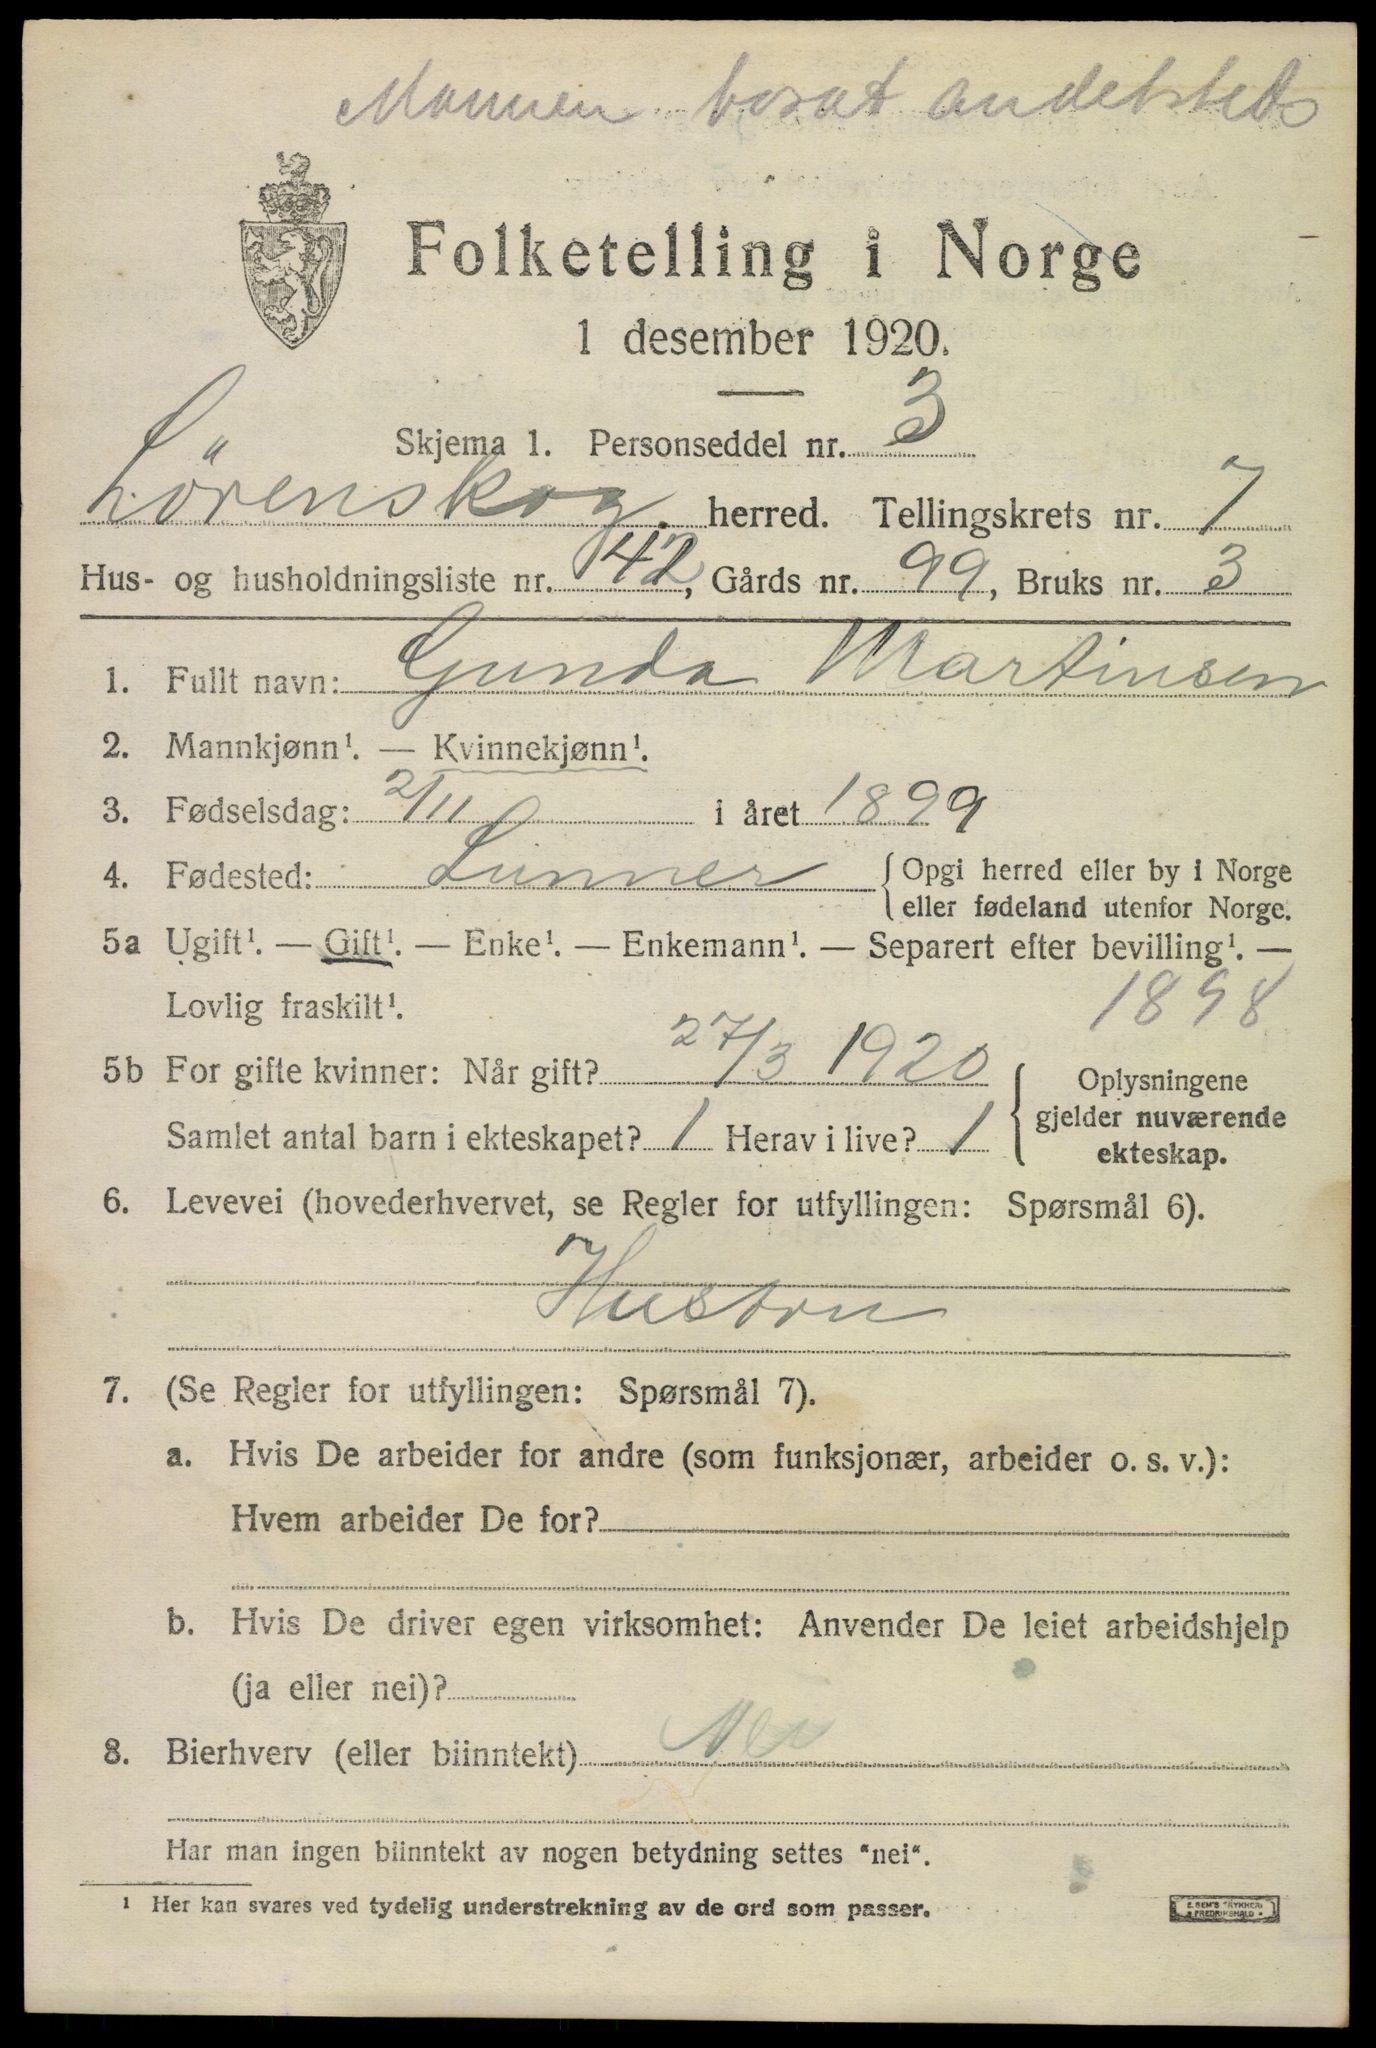 Mannen bosat andetsteds
Folketelling i Norge
1 desember 1920.
Skjema 1. Personseddel nr. 3
Lörenskog herred. Tellingskrets nr. 7
Hus- og husholdningsliste nr. 42, Gårds nr. 99, Bruks nr. 3
1. Fullt navn: Gunda Martinsen
2. Mannkjønn¹. — Kvinnekjønn¹.
3. Fødselsdag: 2/11 i året 1899
4. Fødested: Lunner {Opgi herred eller by i Norge
eller fødeland utenfor Norge.
5a Ugift¹. — Gift¹. — Enke¹. — Enkemann¹. — Separert efter bevilling¹. —
Lovlig fraskilt¹. 1898
5b For gifte kvinner: Når gift? 27/3 1920 {Oplysningene
gjelder nuværende
Samlet antal barn i ekteskapet? 1 Herav i live? 1
ekteskap.
6. Levevei (hovederhvervet, se Regler for utfyllingen: Spørsmål 6).
Hustru
7. (Se Regler for utfyllingen: Spørsmål 7).
a. Hvis De arbeider for andre (som funksjonær, arbeider o. s. v.):
Hvem arbeider De for?
b. Hvis De driver egen virksomhet: Anvender De leiet arbeidshjelp
(ja eller nei)?
8. Bierhverv (eller biinntekt) Nei
Har man ingen biinntekt av nogen betydning settes "nei".
¹ Her kan svares ved tydelig understrekning av de ord som passer.
E. SEM'S TRYKKERI
FREDRIKSHALD